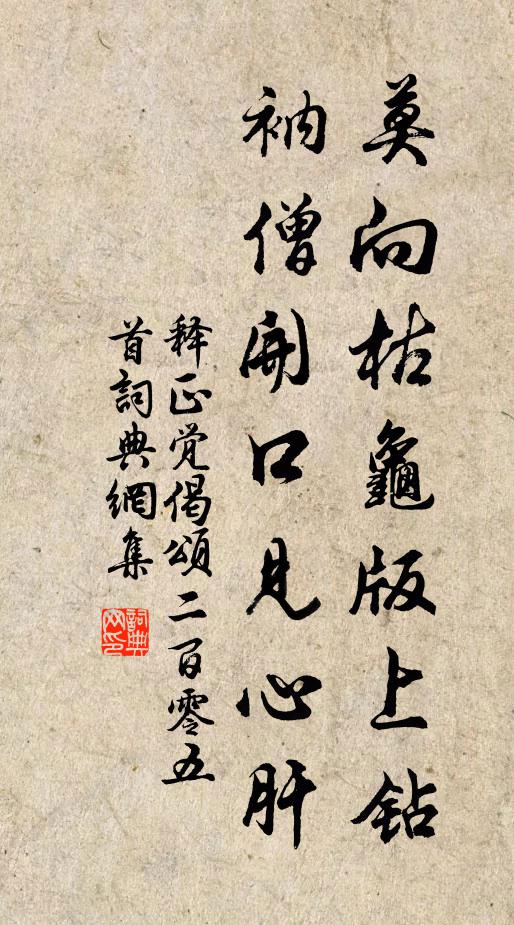 莫向枯龜版上鉆
衲僧開口見心肝
释正觉偈頌二百零五
首詞典網集
詞典网印